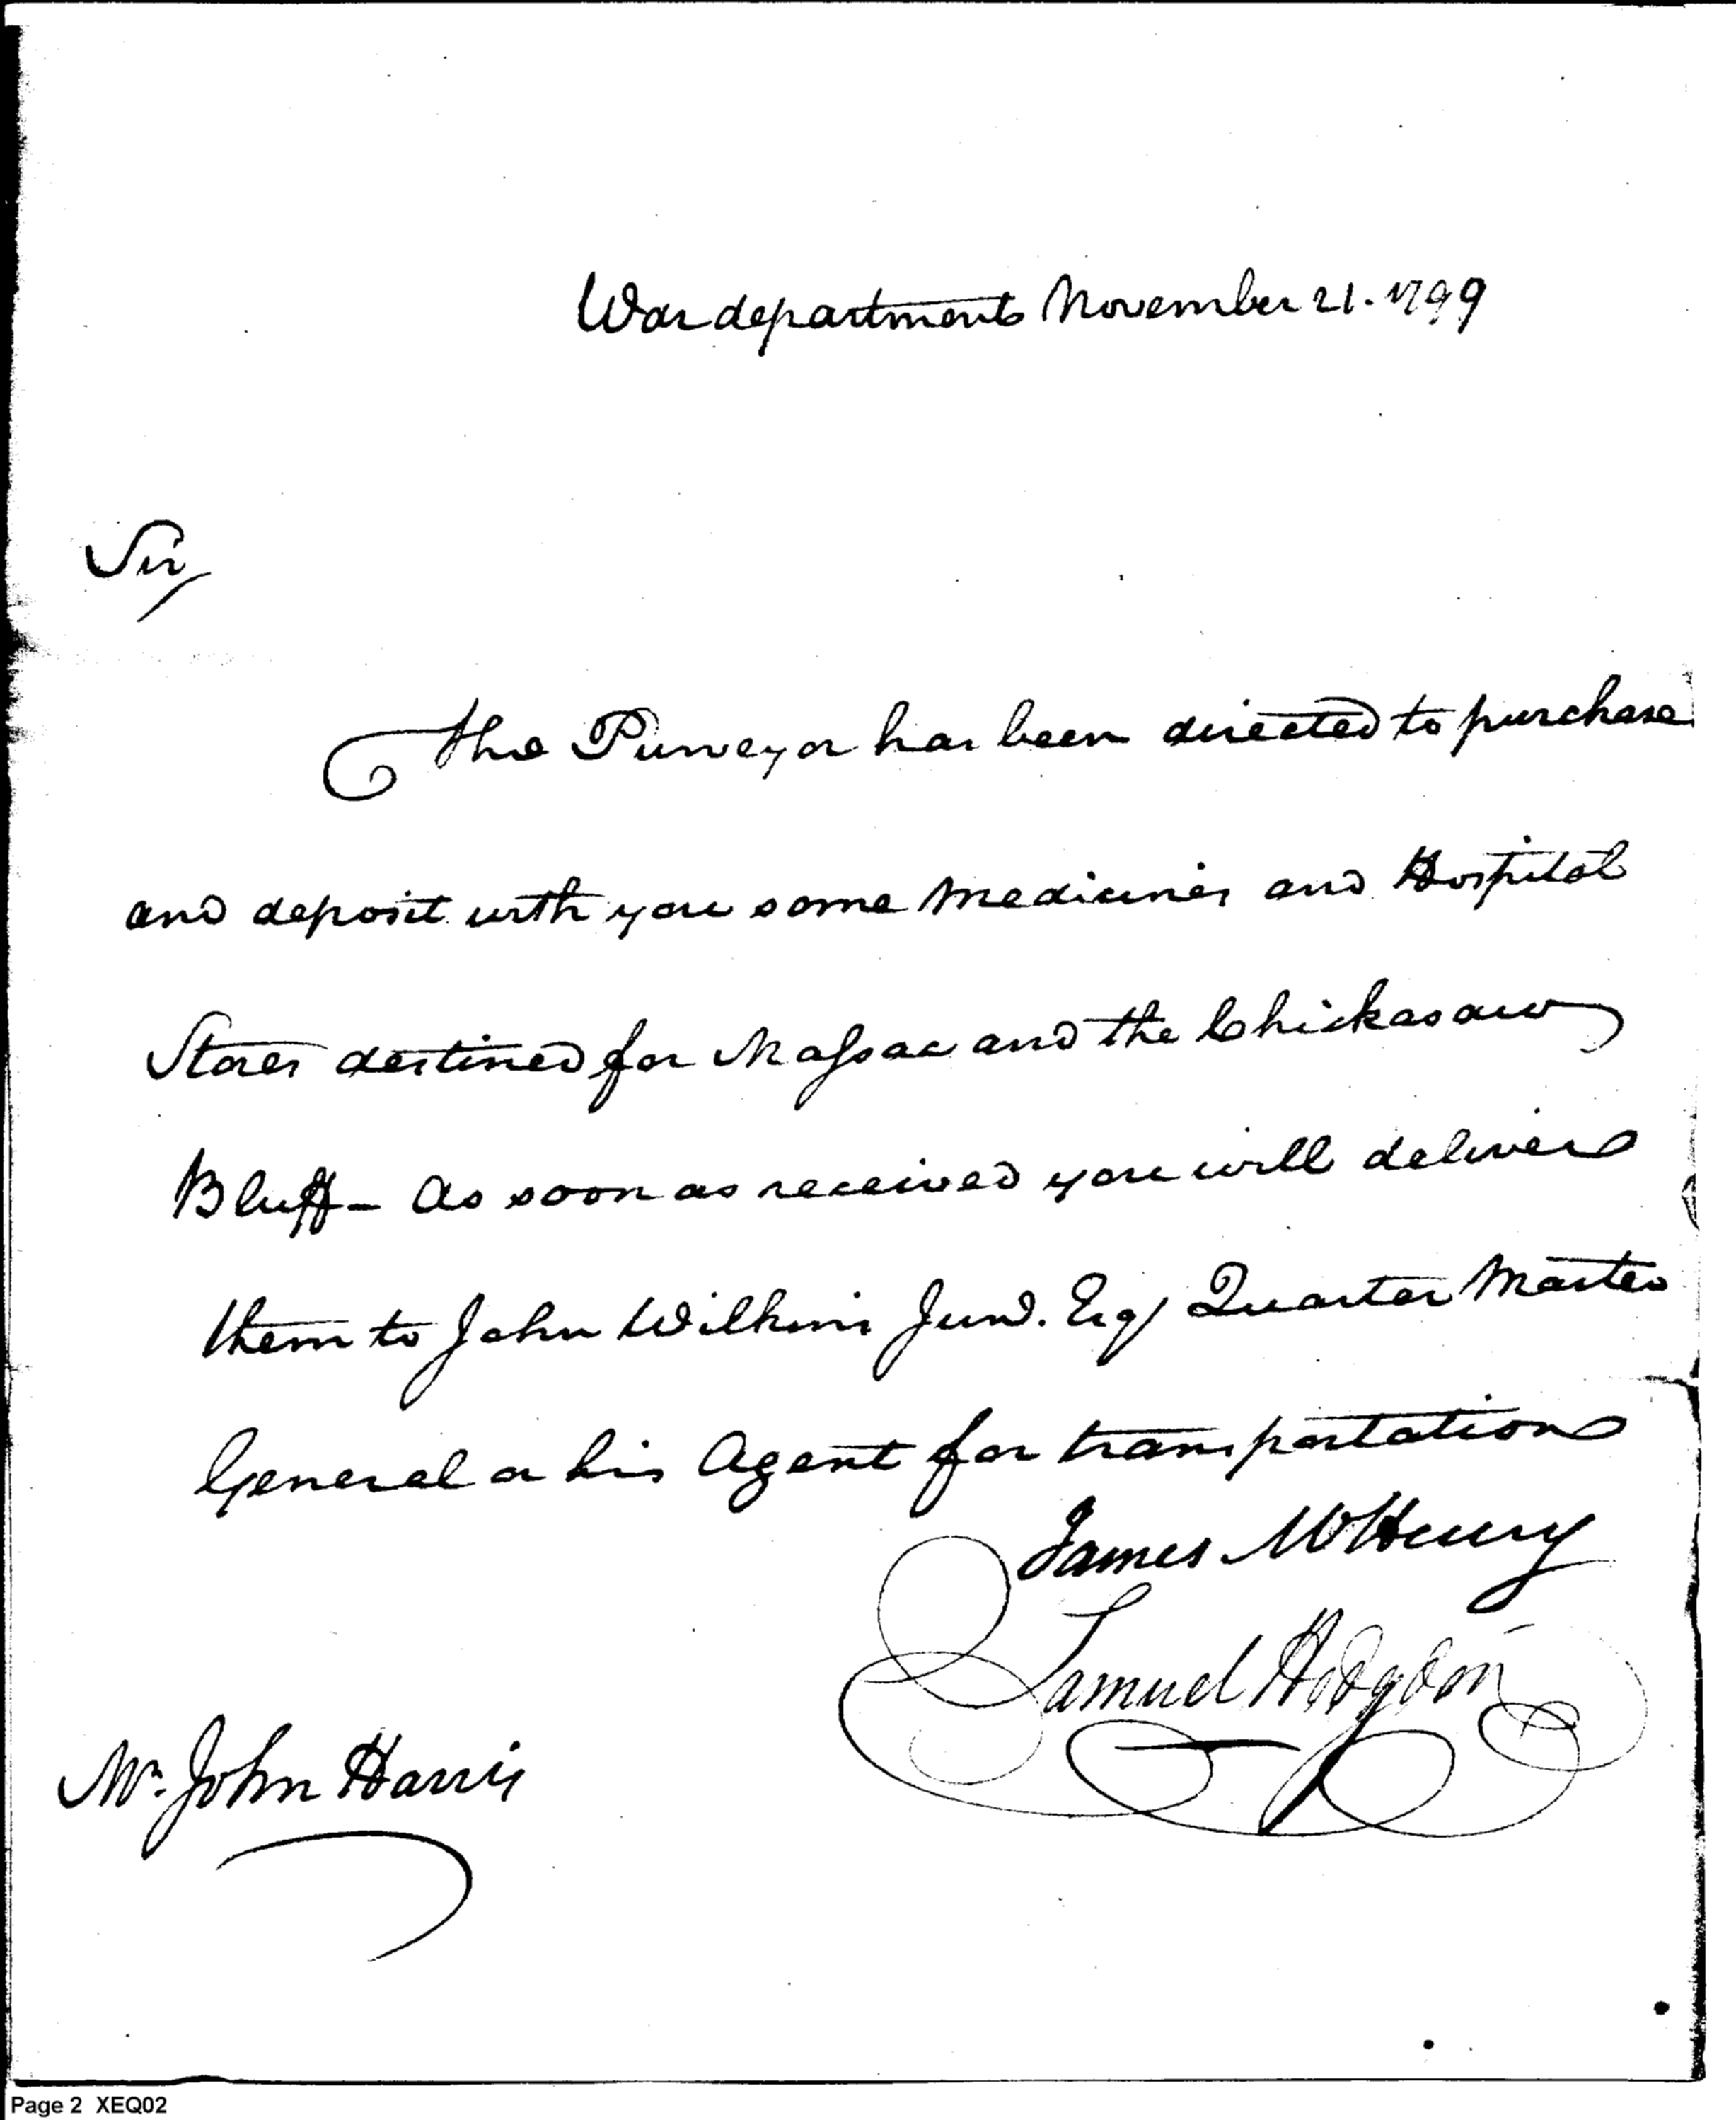 War department November 21. 1799
Sir,
The Purveyor has been directed to purchase
and deposit with you some Medicines and Hospital
Stores destined for Massac and the Chickasaw
Bluff – As soon as received you will deliver
them to John Wilkins Junr. Esq Quarter Master
General or his Agent for transportation
James McHenry
Samuel Hodgdon
Mr. John Harris
Page 2 XEQ02